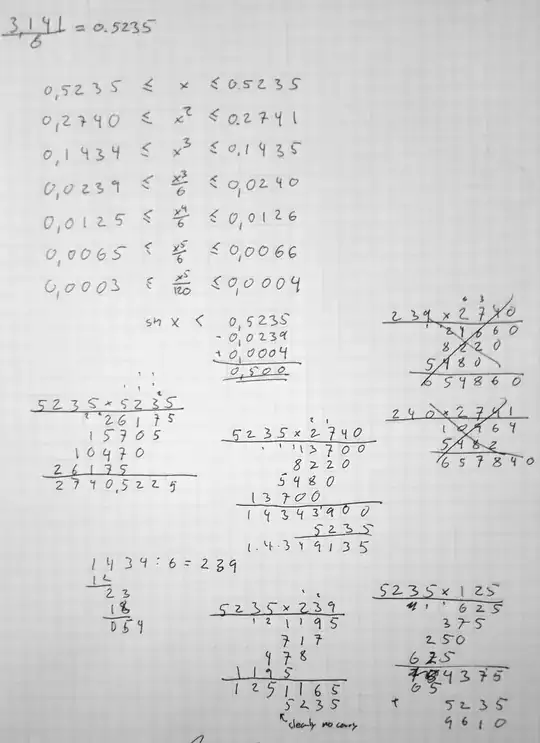 3,141
6
= 0.5235
0,5235 ≤ x ≤ 0.5235
0,2740 ≤ x² ≤ 0.2741
0,1434 ≤ x³ ≤ 0,1435
0,0239 ≤ x³/6 ≤ 0,0240
0,0125 ≤ x⁴/6 ≤ 0,0126
0,0065 ≤ x⁵/6 ≤ 0,0066
0,0003 ≤ x⁵/120 ≤ 0,0004
sin x < 0,5235
- 0,0239
+ 0,0004
0,500
239 × 2740
8220
5480
654860
240 × 2741
10964
5482
657840
5235 × 5235
26175
15705
10470
26175
2740,5225
5235 × 2740
13700
8220
5480
13700
14343900
5235
1.4.349135
1434 : 6 = 239
12
23
18
054
5235 × 239
1195
717
478
1195
1251165
5235
clearly no carry
5235 × 125
625
375
250
625
4375
65
+ 5235
9610